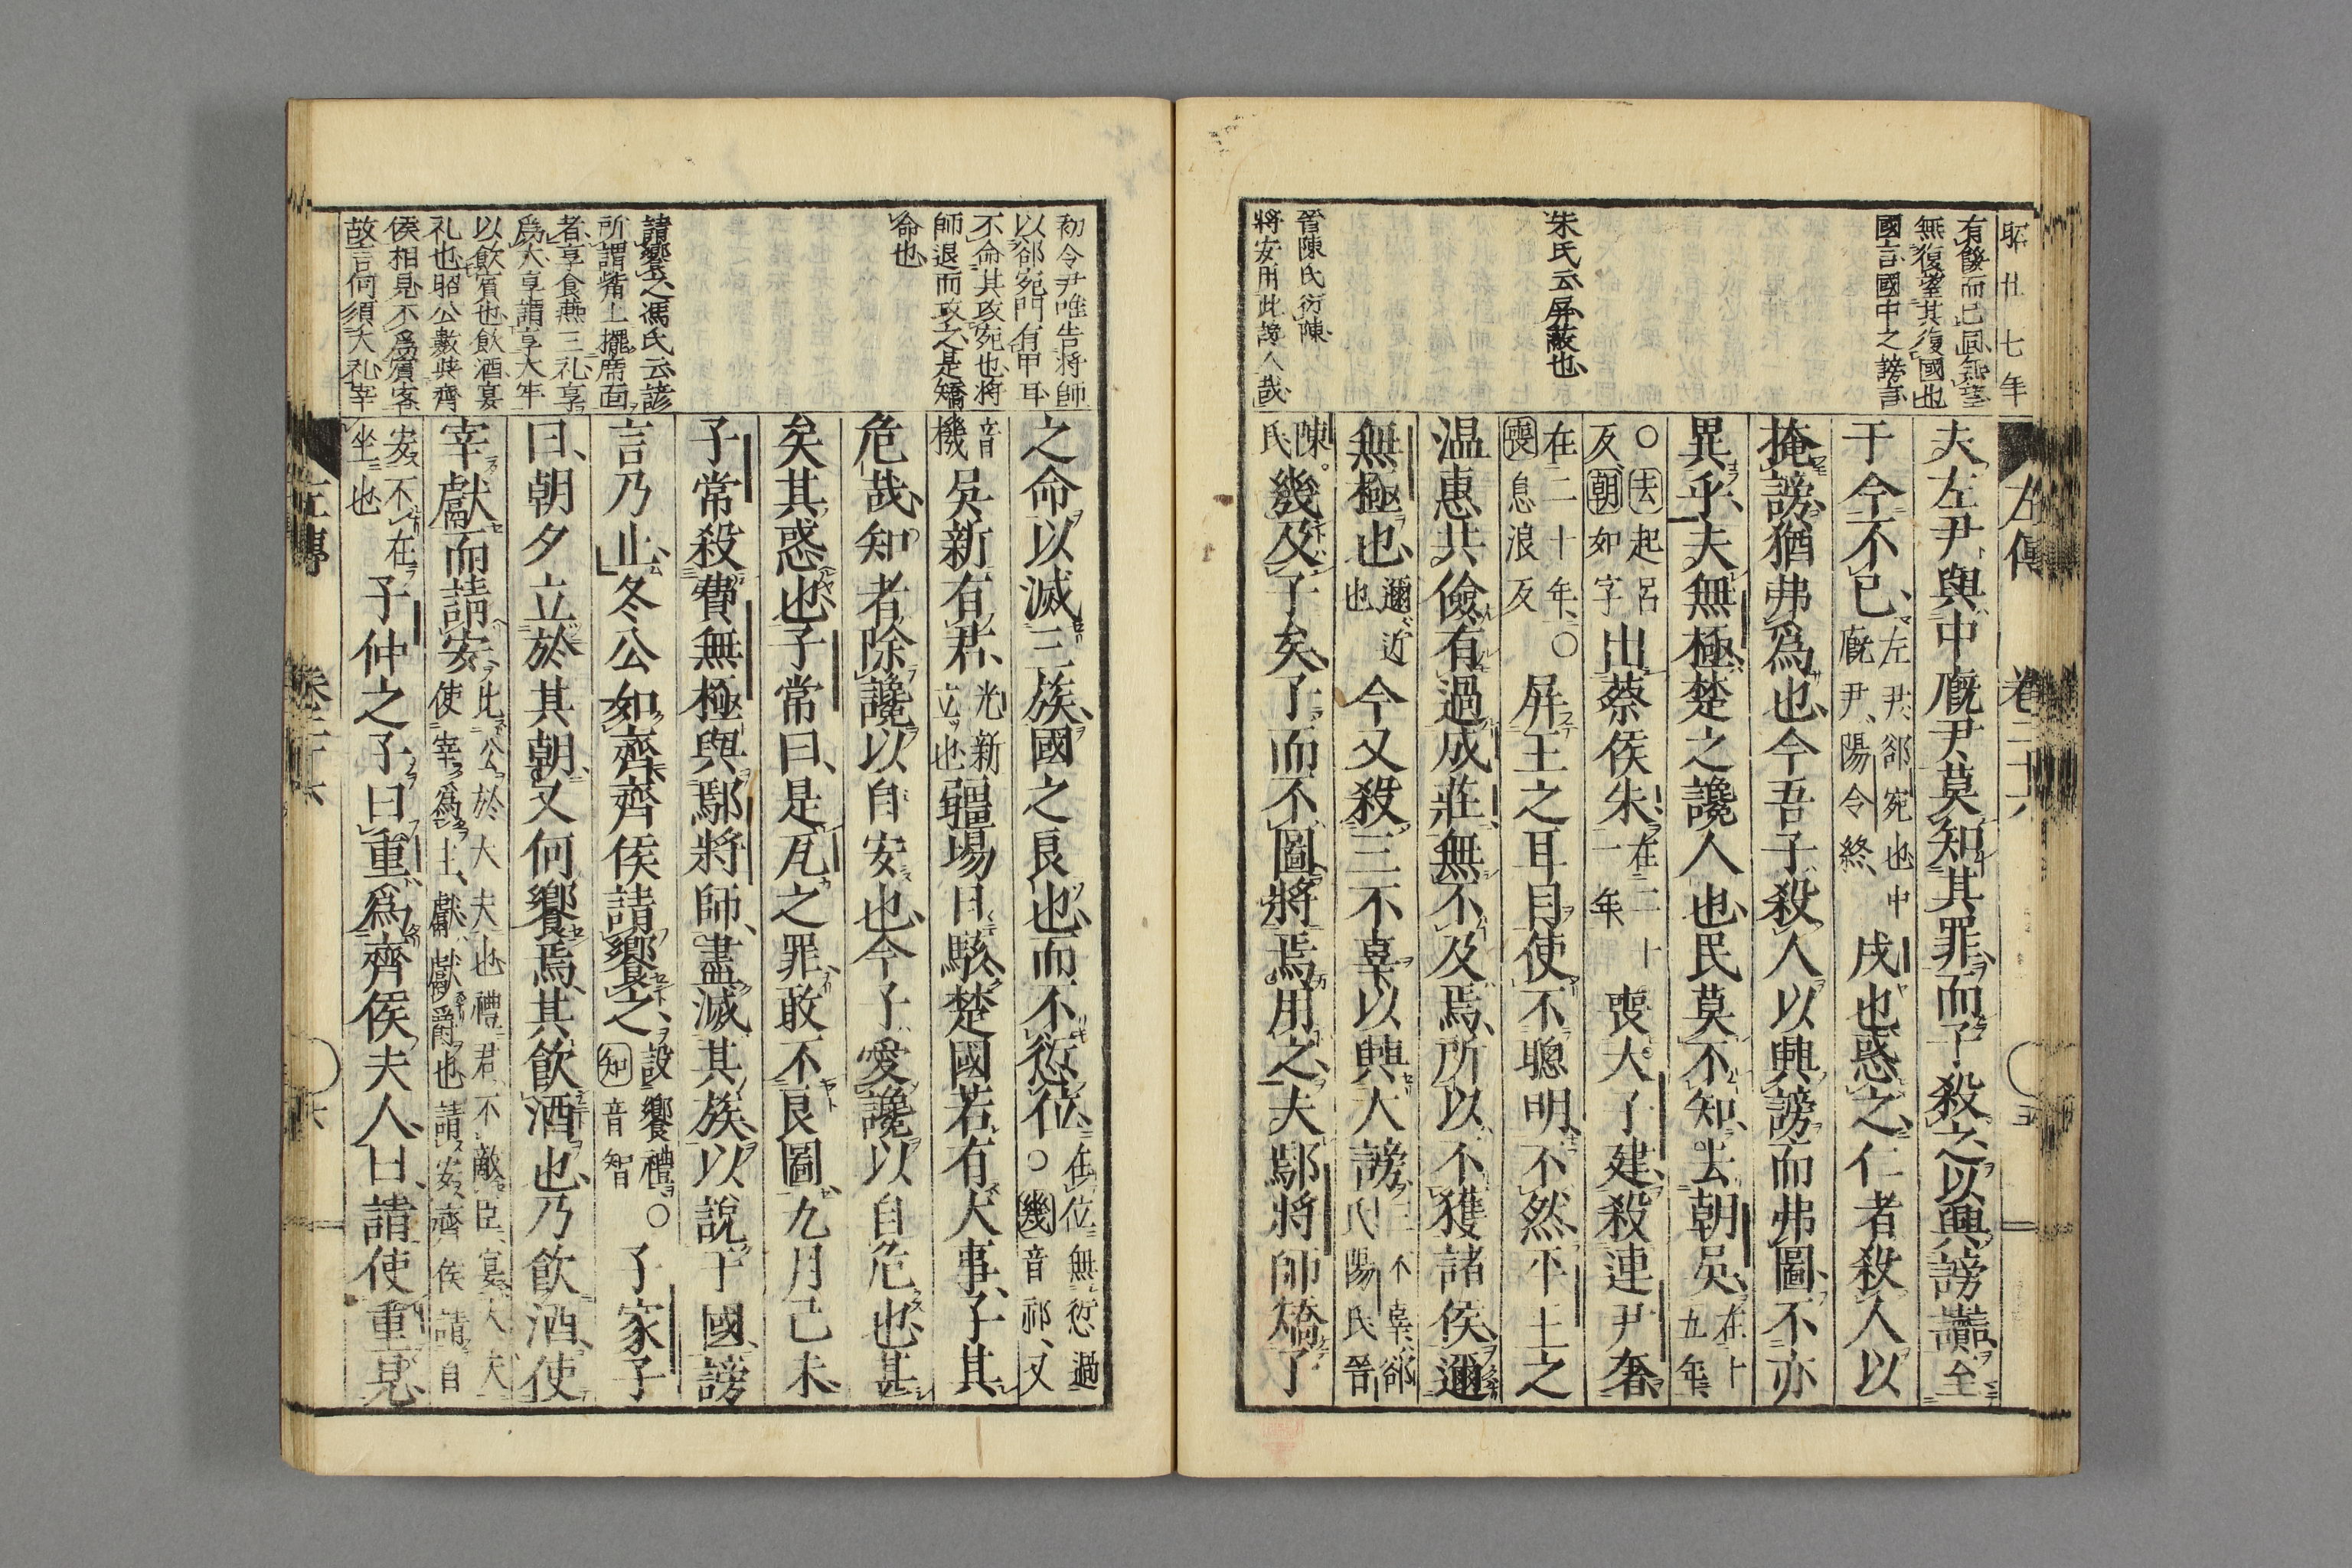 昭廿七年
有餘而已同無望
無復望其復國也
國言國中之謗言
朱氏云屏蔽也
晉陳氏衍陳
將安用此讒人哉
夫左尹與中廐尹莫知其罪而子殺之以興謗讟至
于今不已左尹郤宛也中廐尹陽令終戌也惑之仁者殺人以
掩謗猶弗爲也今吾子殺人以興謗而弗圖不亦
異乎夫無極楚之讒人也民莫不知去朝吳在十五年
○去起呂反朝如字出蔡侯朱在二十一年喪大子建殺連尹奢
在二十年○喪息浪反屏王之耳目使不聰明不然平王之
温惠共儉有過成莊無不及焉所以不獲諸侯邇
無極也邇近也今又殺三不辜以興大謗三不辜郤氏陽氏晉
陳氏幾及子矣子而不圖將焉用之夫鄢將師矯子
左傳 卷二十六 五
初令尹唯告將師
以郤宛門有甲耳
不命其攻宛也將
師退而攻之是矯
命也
請饗之馮氏云諺
所謂嘴上擺席面
者享食燕三礼享
爲大享請享大牢
以飲賓也飲酒宴
礼也昭公數與齊
侯相見不爲賓客
故言何須大礼宰
之命以滅三族國之良也而不愆位在位無愆過○幾音祁又
音機吳新有君光新立也疆埸日駭楚國若有大事子其
危哉知者除讒以自安也今子愛讒以自危也甚
矣其惑也子常曰是瓦之罪敢不良圖九月己未
子常殺費無極與鄢將師盡滅其族以說于國謗
言乃止冬公如齊齊侯請饗之設饗禮○知音智子家子
曰朝夕立於其朝又何饗焉其飲酒也乃飲酒使
宰獻而請安比公於大夫也禮君不敵臣宴大夫使宰爲主獻獻爵也請安齊侯請自
安不在坐也子仲之子曰重爲齊侯夫人曰請使重見
左傳 卷二十六 六